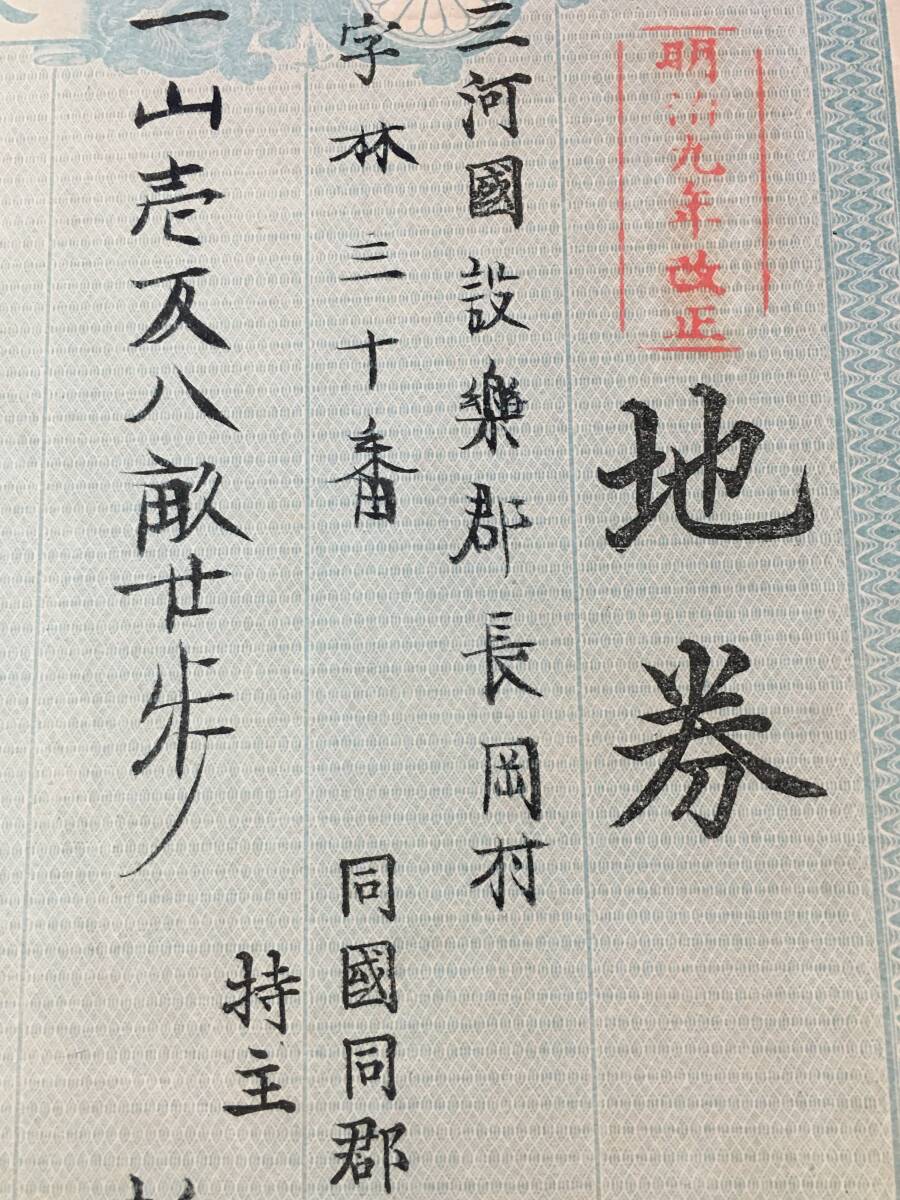 明治九年改正
地券
三河國設樂郡長岡村
字林三十番
同國同郡
持主
一山壱反八畝廿歩